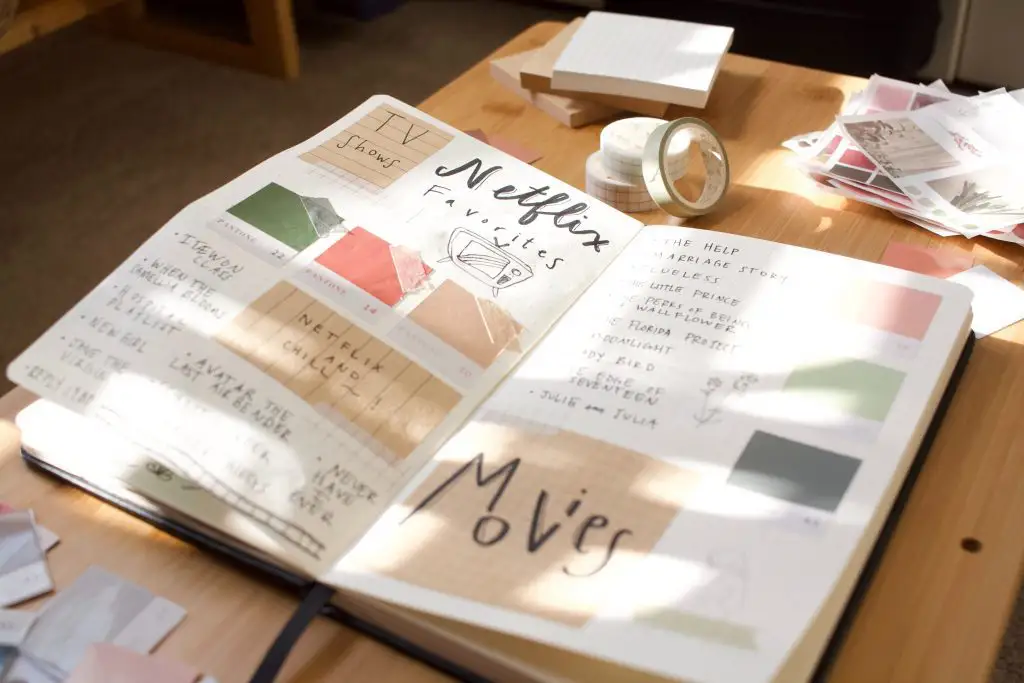 TV
Shows
Netflix
Favorites
PANTONE
22
PANTONE
24
• ITEWON
CLASS
• WHEN THE
CAMELLIA BLOOMS
• HOSPITAL
PLAYLIST
• NEW GIRL
• JANE THE
VIRGIN
• REPLY
NETFLIX
AND
CHILL ~!
• AVATAR THE
LAST AIRBENDER
• NEVER
HAVE I
EVER
THE HELP
MARRIAGE STORY
CLUELESS
THE LITTLE PRINCE
PERKS OF BEING
WALLFLOWER
THE FLORIDA PROJECT
MOONLIGHT
BIRD
EDGE OF
SEVENTEEN
• JULIE and JULIA
Movies